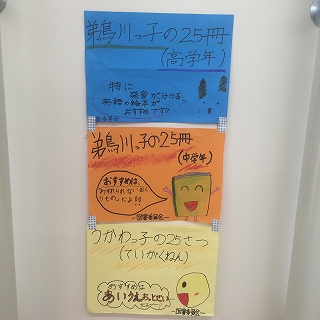 鵜川っ子の25冊
(高学年)
特に
発音が分かる
英語の絵本が
おすすめです!!
鵜川っ子の25冊
(中学年)
おすすめは、
わすれられないおく
りものだよ!!
―図書委員会―
うかわっ子の25さつ
(ていがくねん)
おすすめは
あいうえおっとせい
だよ〜
―図書委員会―